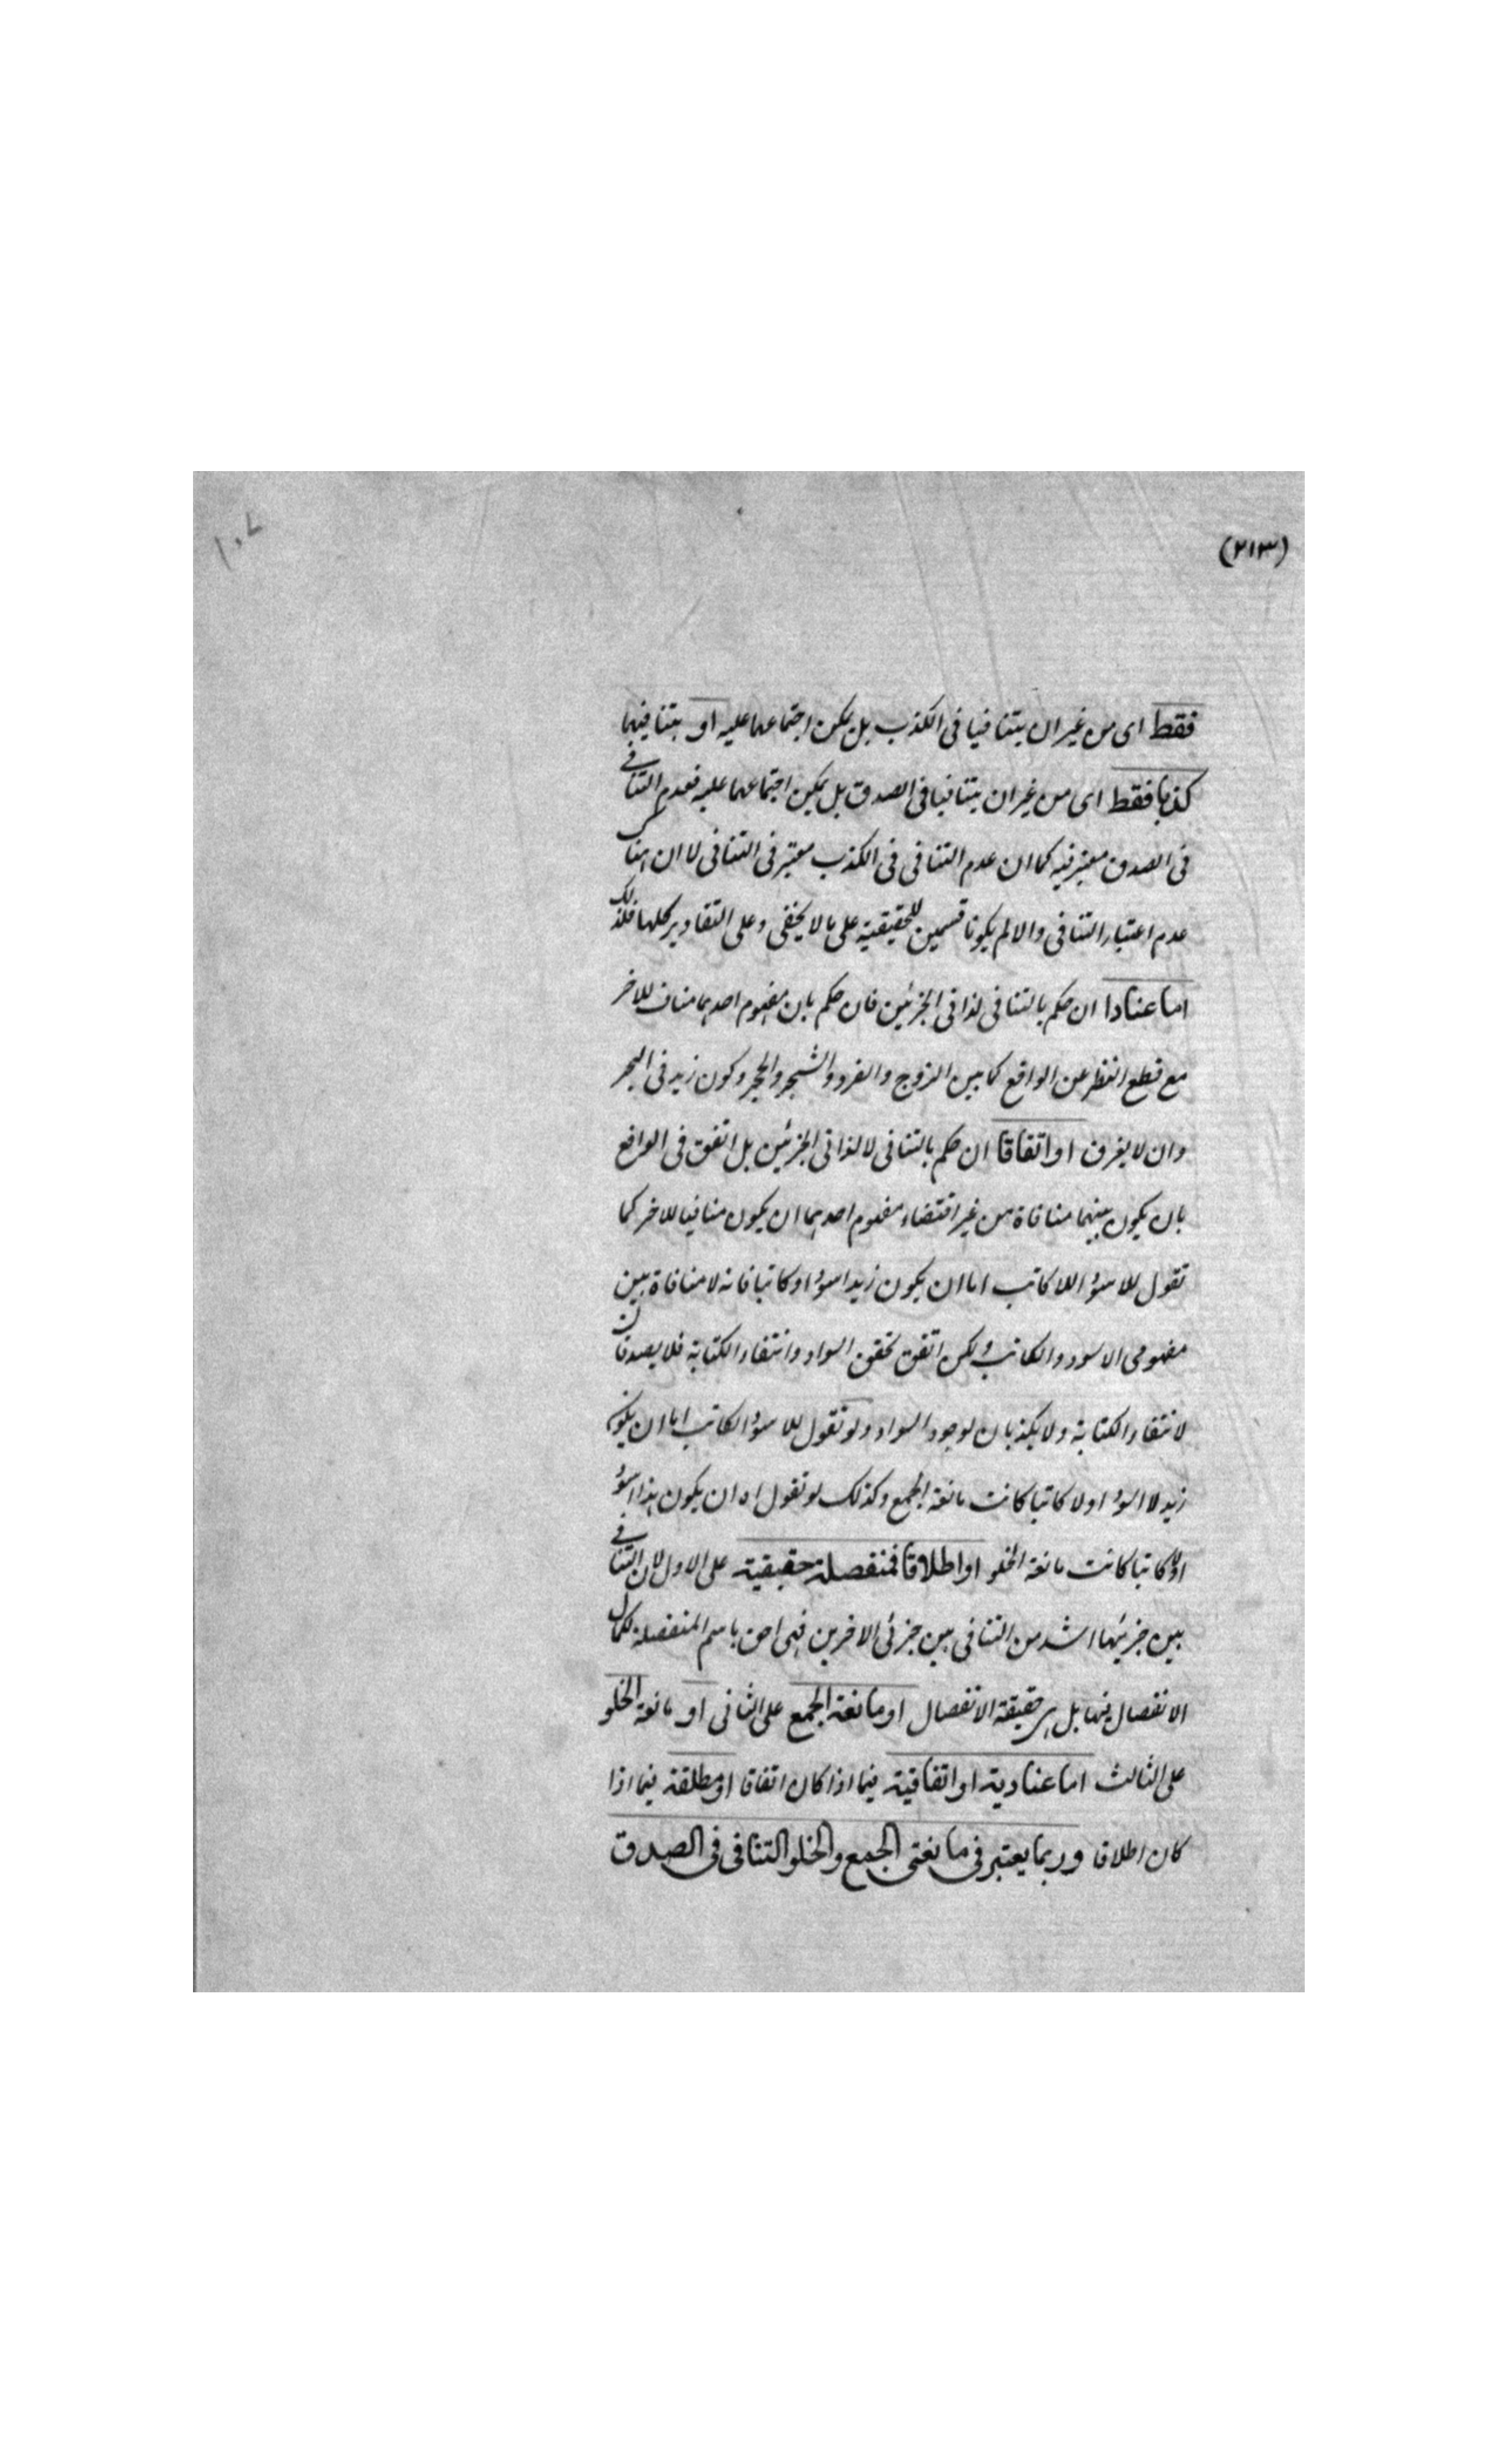 (٢١٣)
١٠٧
فقط اى من غير ان يتنافيا فى الكذب بل يمكن اجتماعهما عليه او بتنافيهما
كذبا فقط اى من غير ان يتنافيا فى الصدق بل يمكن اجتماعهما عليه فعدم التنافى
فى الصدق معتبر فيه كما ان عدم التنافى فى الكذب معتبر فى التنافى لا ان هناك
عدم اعتبار التنافى والا لم يكونا قسمين للحقيقية على ما لا يخفى وعلى التقادير كلها فلذلك
اما عنادا ان حكم بالتنافى لذاتى الجزئين فان حكم بان مفهوم احدهما مناف للاخر
مع قطع النظر عن الواقع كما بين الزوج والفرد والشجر والحجر وكون زيد فى البحر
وان لا يغرق او اتفاقا ان حكم بالتنافى لا لذاتى الجزئين بل اتفق فى الواقع
بان يكون بينهما منافاة من غير اقتضاء مفهوم احدهما ان يكون منافيا للاخر كما
تقول للاسود اللاكاتب اما ان يكون زيد اسود او كاتبا فانه لا منافاة بين
مفهومى الاسود والكاتب ولكن اتفق تحقق السواد وانتفاء الكتابة فلا يصدقان
لانتفاء الكتابة ولا يكذبان لوجود السواد ولو نقول للاسود الكاتب اما ان يكون
زيد لا اسود او لا كاتبا كانت مانعة الجمع وكذلك لو نقول اما ان يكون هذا اسود
او لا كاتبا كانت مانعة الخلو او اطلاقا فمنفصلة حقيقية على الاول لان التنافى
بين جزئيها اشد من التنافى بين جزئى الاخرين فهى احق باسم المنفصلة لكمال
الانفصال فيها بل هى حقيقة الانفصال او مانعة الجمع على الثانى او مانعة الخلو
على الثالث اما عنادية او اتفاقية فيما اذا كان اتفاقا او مطلقة فيما اذا
كان اطلاقا وربما يعتبر فى مانعتى الجمع والخلو التنافى فى الصدق